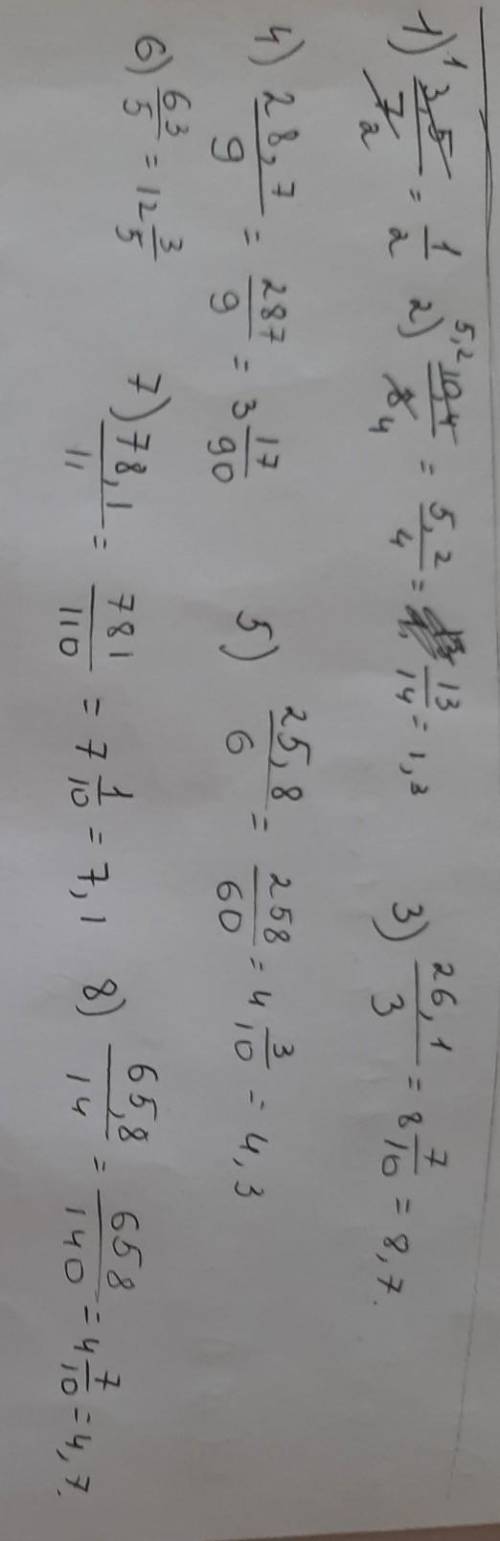 1) 3,5/7 = 1/2 2) 10,4/8 = 5,2/4 = 13/14 = 1,3 3) 26,1/3 = 8 7/10 = 8,7.
4) 28,7/9 = 287/9 = 3 17/90 5) 25,8/6 = 258/60 = 4 3/10 = 4,3
6) 63/5 = 12 3/5 7) 78,1/11 = 781/110 = 7 1/10 = 7,1 8) 65,8/14 = 658/140 = 4 7/10 = 4,7.